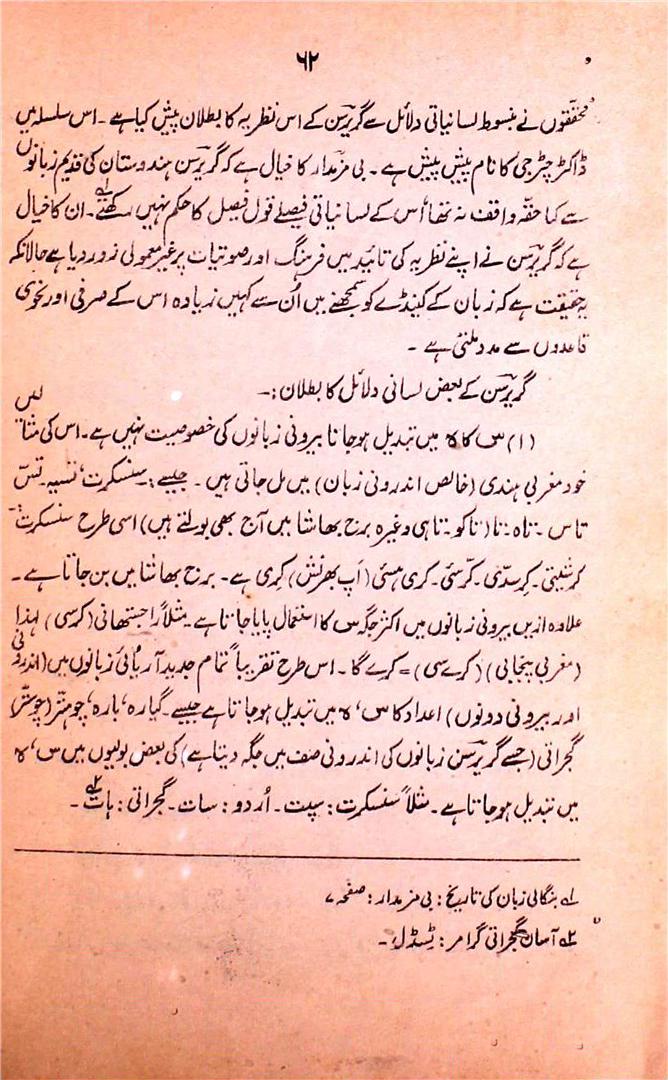 ۶۲
محققوں نے مبسوط لسانیاتی دلائل سے گریرسن کے اس نظریہ کا بطلان پیش کیا ہے۔ اس سلسلہ میں
ڈاکٹر چٹرجی کا نام پیش پیش ہے۔ بی مزمدار کا خیال ہے کہ گریرسن ہندوستان کی قدیم زبانوں
سے کما حقہٗ واقف نہ تھا اُس کے لسانیاتی فیصلے قول فیصل کا حکم نہیں رکھتے۱؎۔ ان کا خیال
ہے کہ گریرسن نے اپنے نظریہ کی تائید میں فرہنگ اور صوتیات پر غیر معمولی زور دیا ہے حالانکہ
یہ حقیقت ہے کہ زبان کے کینڈے کو سمجھنے میں اُن سے کہیں زیادہ اس کے صرفی اور نحوی
قاعدوں سے مدد ملتی ہے۔
گریرسن کے بعض لسانی دلائل کا بطلان:۔
(۱) س کا ہ میں تبدیل ہو جانا بیرونی زبانوں کی خصوصیت نہیں ہے۔ اس کی مثالیں
خود مغربی ہندی (خالص اندرونی زبان) میں مل جاتی ہیں۔ جیسے: سنسکرت، تسیہ تسّ
تاس۔ تاہ۔ تا (تاکو۔ تاہی وغیرہ برج بھاشا میں آج بھی بولتے ہیں) اسی طرح سنسکرت:۔
کرشیتی۔ کرسدّی۔ کرّسئی۔ کری ہسئی (اَپ بھرنش) کرِی ہے۔ برج بھاشا میں بن جاتا ہے۔
علاوہ ازیں بیرونی زبانوں میں اکثر جگہ س کا استعمال پایا جاتا ہے۔ مثلاً راجستھانی (کرسی) لہندا
(مغربی پنجابی) (کرے سی) = کرے گا۔ اس طرح تقریباً تمام جدید آریائی زبانوں میں (اندرونی
اور بیرونی دونوں) اعداد کا س، ہ میں تبدیل ہو جاتا ہے جیسے۔ گیارہ، بارہ، چوہتّر (چوستّر)
گجراتی (جسے گریرسن زبانوں کی اندرونی صنف میں جگہ دیتا ہے) کی بعض بولیوں میں س، ہ
میں تبدیل ہو جاتا ہے۔ مثلاً سنسکرت: سپت۔ اُردو: سات۔ گجراتی: ہات۲؎۔
۱؎ بنگالی زبان کی تاریخ: بی مزمدار: صفحہ ۷
۲؎ آسان گجراتی گرامر: ٹسڈل۔